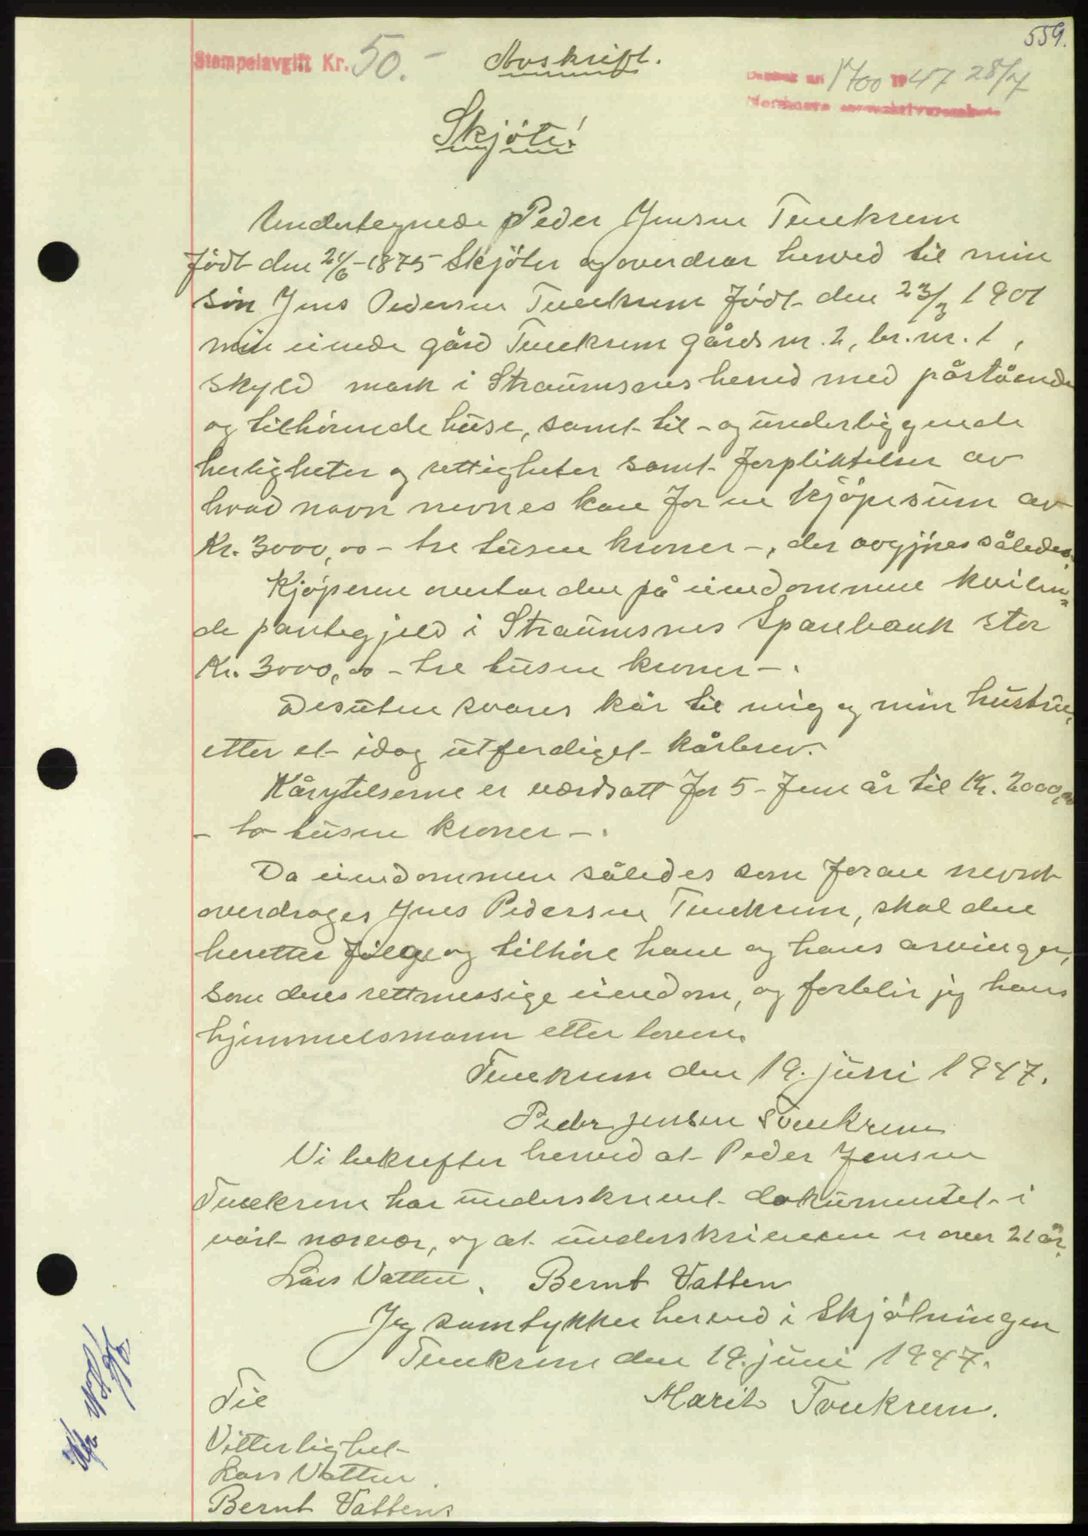 559.
Stempelavgift Kr. 50.-
Avskrift.
Dagbok nr. 1700 1947 28/7
Nordmøre sorenskriverembete
Skjöte!
Undertegnede Peder Jensen Tvenkrem
født den 24/6-1875 Skjöter og overdrar herved til min
sön Jens Pedersen Tvenkrem födt den 23/3 1901
min eiende gård Tvenkrem gårds nr. 2, br. nr. 1,
skyld mark i Straumsnes herred med påstående
og tilhörende huse, samt til- og underliggende
herligheter og rettigheter samt forpliktelser av
hvad navn nevnes kan for en kjöpesum av
Kr. 3000,00 - tre tusen kroner -, der avgjöres således.
Kjöperen overtar den på eiendommen kvilen=
de pantegjeld i Straumsnes Sparebank stor
Kr. 3000,00 - tre tusen kroner -.
Desuten svares kår til mig og min hustru,
etter et idag utferdiget kårbrev.
Kårytelserne er verdsatt for 5 - fem år til Kr. 2000,00
- to tusen kroner -.
Da eiendommen således som foran nevnt
overdrages Jens Pedersen Tvenkrem, skal den
heretter følge og tilhöre ham og hans arvinger,
som deres rettmessige eiendom, og forblir jeg hans
hjemmelsmann etter loven.
Tvenkrem den 19. juni 1947.
Peder Jensen Tvenkrem
Vi bekrefter herved at Peder Jensen
Tvenkrem har underskrevet dokumentet i
vårt nærvær, og at underskriveren er over 21 år.
Lars Vatten. Bernt Vatten
Jeg samtykker herved i Skjötningen
Tvenkrem den 19. juni 1947.
Marit Tvenkrem.
Til
Vitterlighet
Lars Vatten
Bernt Vatten